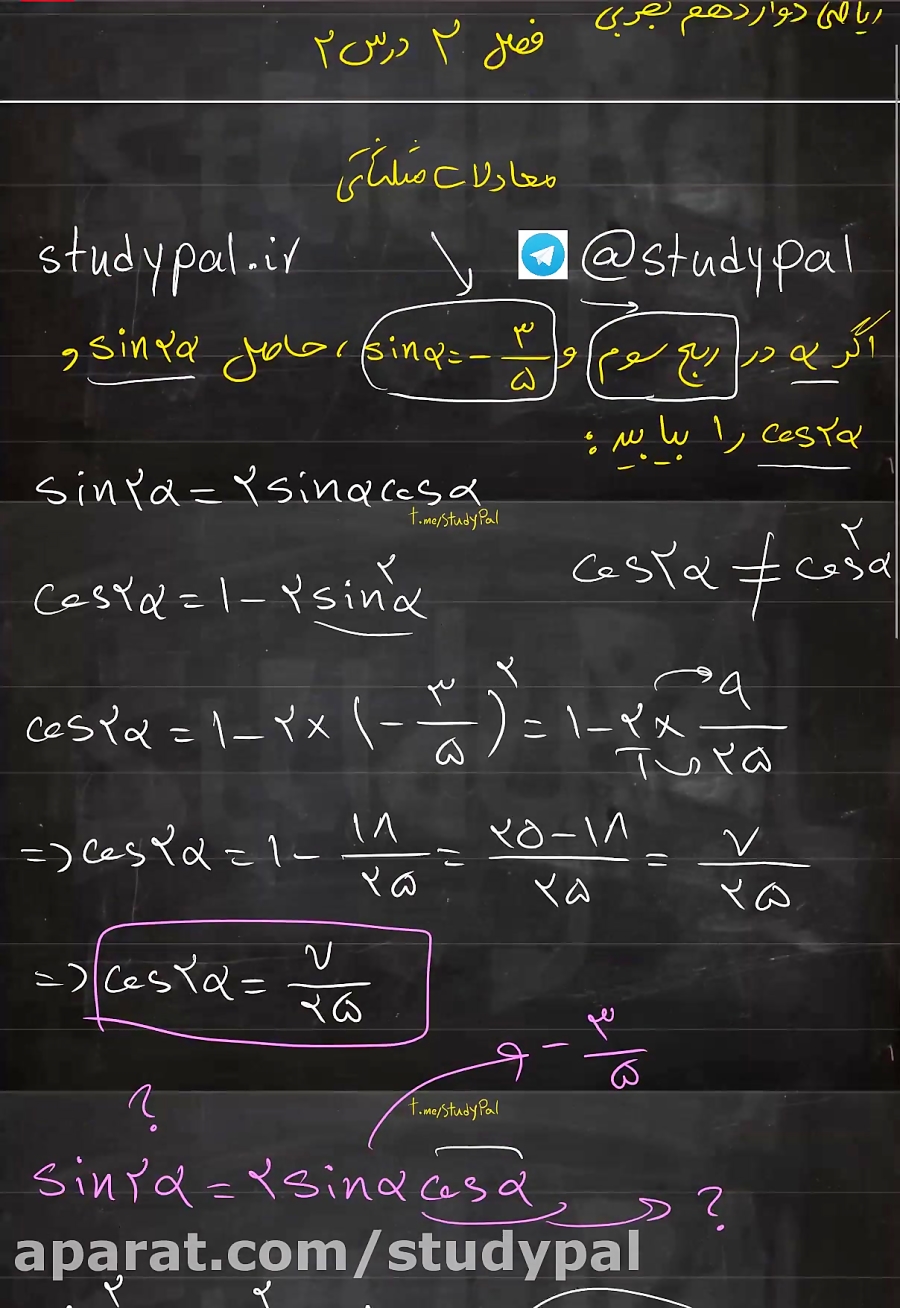 ریاضی دوازدهم تجربی
فصل ۲ درس ۲
معادلات مثلثاتی
studypal.ir @studypal
اگر α در ربع سوم و sinα = -۳/۵ ، حاصل sin۲α و
cos۲α را بیابید :
sin۲α = ۲sinαcosα
t.me/StudyPal
cos۲α ≠ cos²α
cos۲α = ۱ - ۲sin²α
cos۲α = ۱ - ۲ × (-۳/۵)² = ۱ - ۲ × ۹/۲۵
=> cos۲α = ۱ - ۱۸/۲۵ = ۲۵-۱۸/۲۵ = ۷/۲۵
=> cos۲α = ۷/۲۵
-۳/۵
?
t.me/StudyPal
sin۲α = ۲sinαcosα ?
aparat.com/studypal